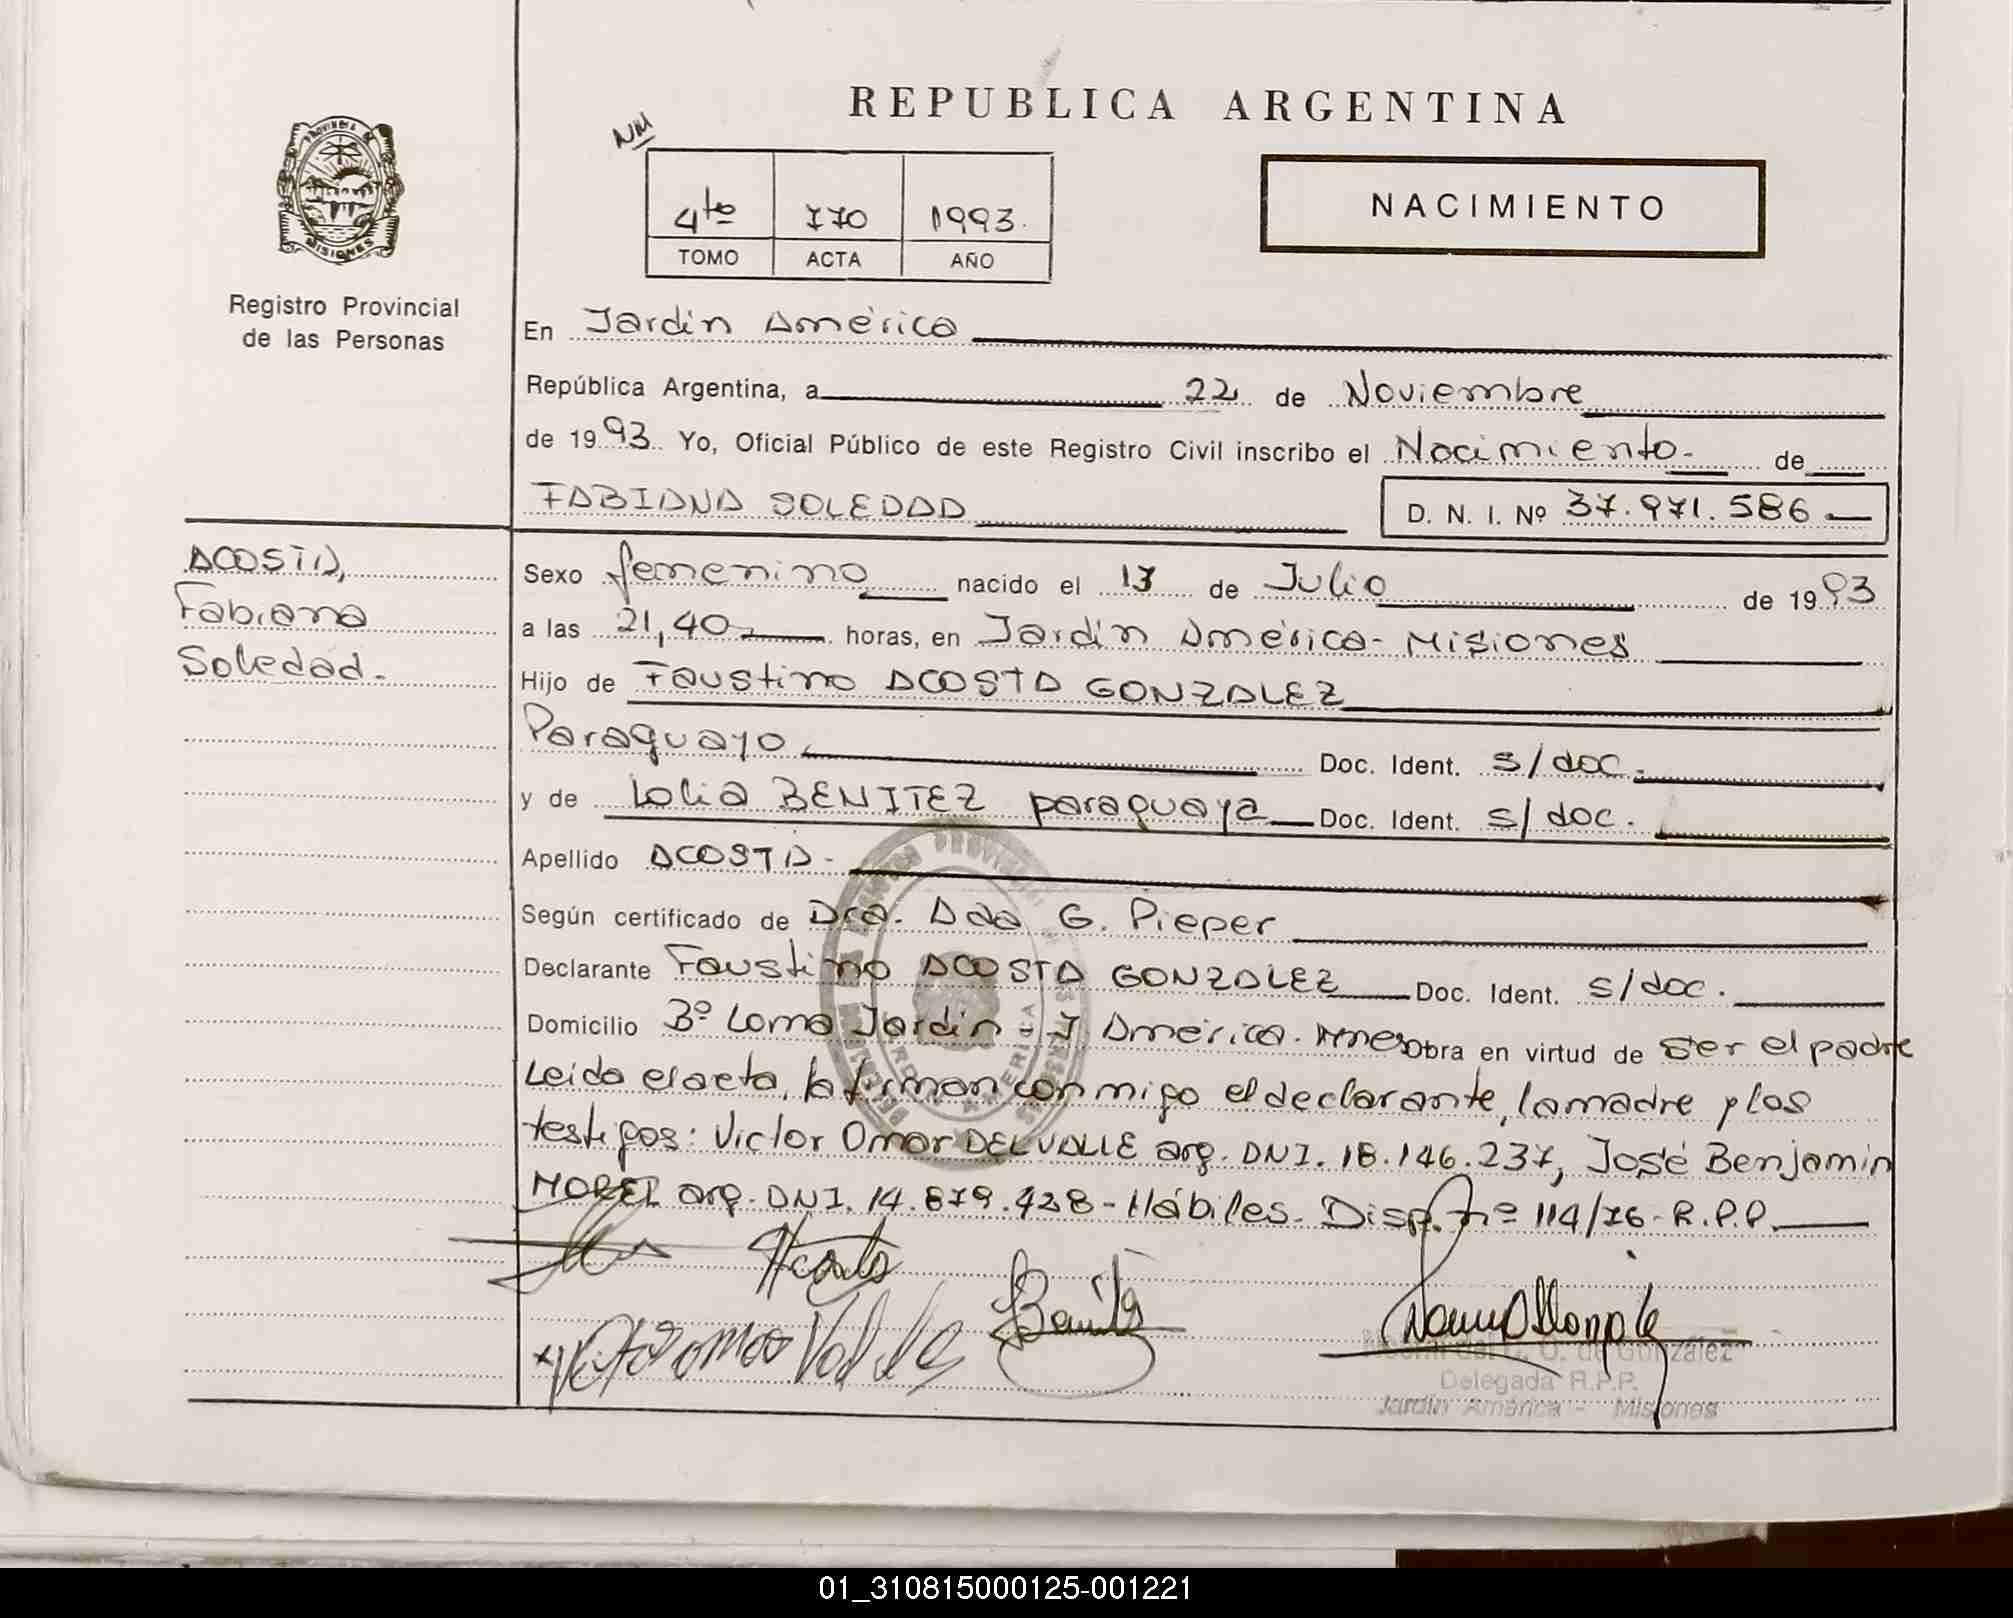 REPUBLICA ARGENTINA
NM
4to 770 1993.
TOMO ACTA AÑO
NACIMIENTO
PROVINCIA DE
MISIONES
Registro Provincial
de las Personas
En Jardín América
República Argentina, a 22 de Noviembre
de 1993. Yo, Oficial Público de este Registro Civil inscribo el Nacimiento- de
FABIANA SOLEDAD D. N. I. Nº 37.971.586
ACOSTA,
Fabiana
Soledad.
Sexo femenino nacido el 17 de Julio de 1993
a las 21,40 horas, en Jardín América- Misiones
Hijo de Faustino ACOSTA GONZALEZ
Paraguayo, Doc. Ident. s/doc.
y de BENITEZ paraguaya Doc. Ident. s/doc.
Apellido ACOSTA-
Según certificado de Dra. Ada G. Pieper
Declarante Faustino ACOSTA GONZALEZ Doc. Ident. s/doc.
Domicilio Bº Loma Jardín - J. América. Mnes Obra en virtud de ser el padre
Leída el acta, la firman conmigo el declarante, la madre y los
testigos: Victor Omar DELVALLE arg. DNI. 18.146.237, José Benjamin
MOREL arg. DNI. 14.879.428- Hábiles- Disp. nº 114/76- R.P.P.
Acosta
Benitez
de González
Delegada R.P.P.
Jardín América - Misiones
01_310815000125-001221